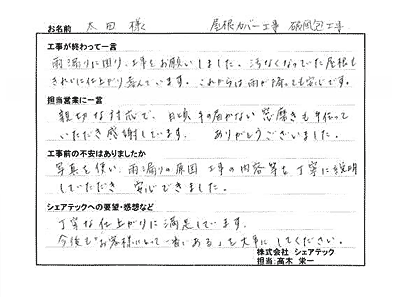 お名前 太田 様 屋根カバー工事 破風包工事
工事が終わって一言
雨漏りに困り、工事をお願いしました。汚くなっていた屋根も
きれいに仕上がり喜んでいます。これからは雨が降っても安心です。
担当営業に一言
親切な対応で、日頃手の届かない窓磨きも手伝って
いただき感謝しています。 ありがとうございました。
工事前の不安はありましたか
写真を使い、雨漏りの原因 工事の内容等を丁寧に説明
していただき 安心できました。
シェアテックへの要望・感想など
丁寧な仕上がりに満足しています。
今後も「お客様にとって一番である」を大事にしてください。
株式会社 シェアテック
担当:高木 栄一